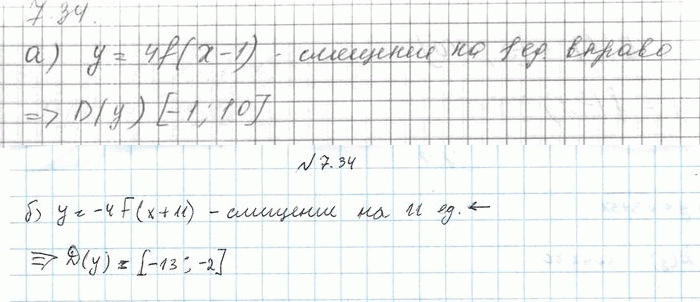 7.34.
а) y = 4f(x-1) - смещение на 1 ед. вправо
=> D(y) [-1; 10]
№7.34
б) y = -4f(x+11) - смещение на 11 ед. ←
=> D(y) = [-13; -2]